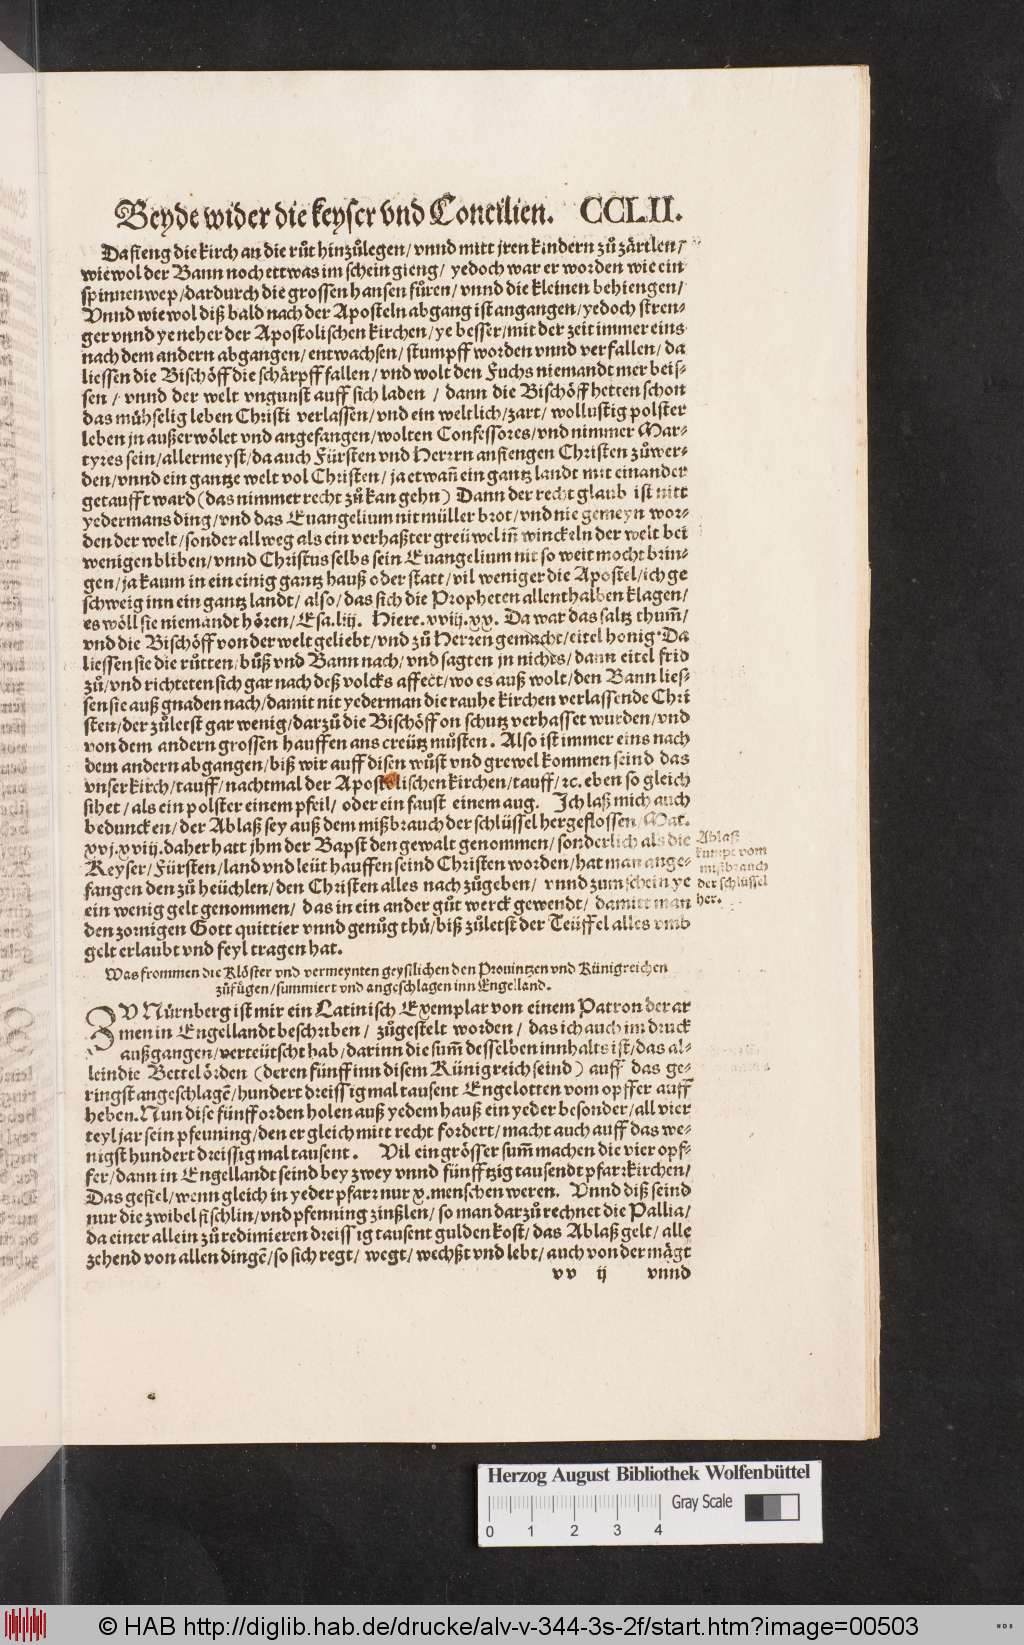 Beyde wider die keyser vnd Concilien. CCLII.
Da fieng die kirch an die růt hinzůlegen / vnnd mitt jren kindern zů zärtlen /
wiewol der Bann noch ettwas im schein gieng / yedoch war er worden wie ein
spinnenwep / dardurch die grossen hansen fůren / vnnd die kleinen behiengen /
Vnnd wiewol diß bald nach der Aposteln abgang ist angangen / yedoch stren-
ger vnnd ye neher der Apostolischen kirchen / ye besser / mit der zeit immer eins
nach dem andern abgangen / entwachsen / stumpff worden vnnd verfallen / da
liessen die Bischöff die schärpff fallen / vnd wolt den Fuchs niemandt mer beis-
sen / vnnd der welt vngunst auff sich laden / dann die Bischöff hetten schon
das mühselig leben Christi verlassen / vnd ein weltlich / zart / wollustig polster
leben jn außerwölet vnd angefangen / wolten Confessores / vnd nimmer Mar-
tyres sein / allermeyst / da auch Fürsten vnd Herrrn anfiengen Christen zůwer-
den / vnnd ein gantze welt vol Christen / ja etwañ ein gantz landt mit einander
getaufft ward (das nimmer recht zů kan gehn) Dann der recht glaub ist nitt
yedermans ding / vnd das Euangelium nit müller brot / vnd nie gemeyn wor-
den der welt / sonder allweg als ein verhaßter greüwel iñ winckeln der welt bei
wenigen bliben / vnnd Christus selbs sein Euangelium nit so weit mocht brin-
gen / ja kaum in ein einig gantz hauß oder statt / vil weniger die Apostel / ich ge
schweig inn ein gantz landt / also / das sich die Propheten allenthalben klagen /
es wöll sie niemandt hören / Esa.liij. Hiere.vviij.xx. Da war das saltz thum̃ /
vnd die Bischöff von der welt geliebt / vnd zů Herren gemacht / eitel honig. Da
liessen sie die růtten / bůß vnd Bann nach / vnd sagten jn nichts / dann eitel frid
zů / vnd richteten sich gar nach deß volcks affect / wo es auß wolt / den Bann lies-
sen sie auß gnaden nach / damit nit yederman die rauhe kirchen verlassende Chri
sten / der zůletst gar wenig / darzů die Bischöff on schutz verhasset wurden / vnd
von dem andern grossen hauffen ans creütz můsten. Also ist immer eins nach
dem andern abgangen / biß wir auff disen wůst vnd grewel kommen seind das
vnser kirch / tauff / nachtmal der Apostolischen kirchen / tauff / ꝛc. eben so gleich
sihet / als ein polster einem pfeil / oder ein faust einem aug. Ich laß mich auch
beduncken / der Ablaß sey auß dem mißbrauch der schlüssel hergeflossen / Mat.
xvj.xviij. daher hatt jhm der Bapst den gewalt genommen / sonderlich als die
Keyser / Fürsten / land vnd leüt hauffen seind Christen worden / hat man ange-
fangen den zů heüchlen / den Christen alles nach zůgeben / vnnd zum schein ye
ein wenig gelt genommen / das in ein ander gůt werck gewendt / damitt man
den zornigen Gott quittier vnnd genůg thů / biß zůletst der Teüffel alles vmb
gelt erlaubt vnd feyl tragen hat.
Ablaß
kumpt vom
mißbrauch
der schlüssel
her.
Was frommen die Klöster vnd vermeynten geystlichen den Prouintzen vnd Künigreichen
zůfůgen / summiert vnd angeschlagen inn Engelland.
ZV Nürnberg ist mir ein Latinisch Exemplar von einem Patron der ar
men in Engellandt beschriben / zůgestelt worden / das ich auch im druck
außgangen / verteütscht hab / darinn die sum̃ desselben innhalts ist / das al-
lein die Bettelörden (deren fünff inn disem Künigreich seind) auff das ge-
ringst angeschlagẽ / hundert dreissig mal tausent Engelotten vom opffer auff
heben. Nun dise fünff orden holen auß yedem hauß ein yeder besonder / all vier
teyl jar sein pfenning / den er gleich mitt recht fordert / macht auch auff das we-
nigst hundert dreissig mal tausent. Vil ein grösser sum̃ machen die vier opf-
fer / dann in Engellandt seind bey zwey vnnd fünfftzig tausendt pfarrkirchen /
Das gefiel / wenn gleich in yeder pfarr nur x. menschen weren. Vnnd diß seind
nur die zwibel fischlin / vnd pfenning zinßlen / so man darzů rechnet die Pallia /
da einer allein zů redimieren dreissig tausent gulden kost / das Ablaß gelt / alle
zehend von allen dingẽ / so sich regt / wegt / wechßt vnd lebt / auch von der mägt
vv ij vnnd
Herzog August Bibliothek Wolfenbüttel
0 1 2 3 4 Gray Scale
© HAB http://diglib.hab.de/drucke/alv-v-344-3s-2f/start.htm?image=00503